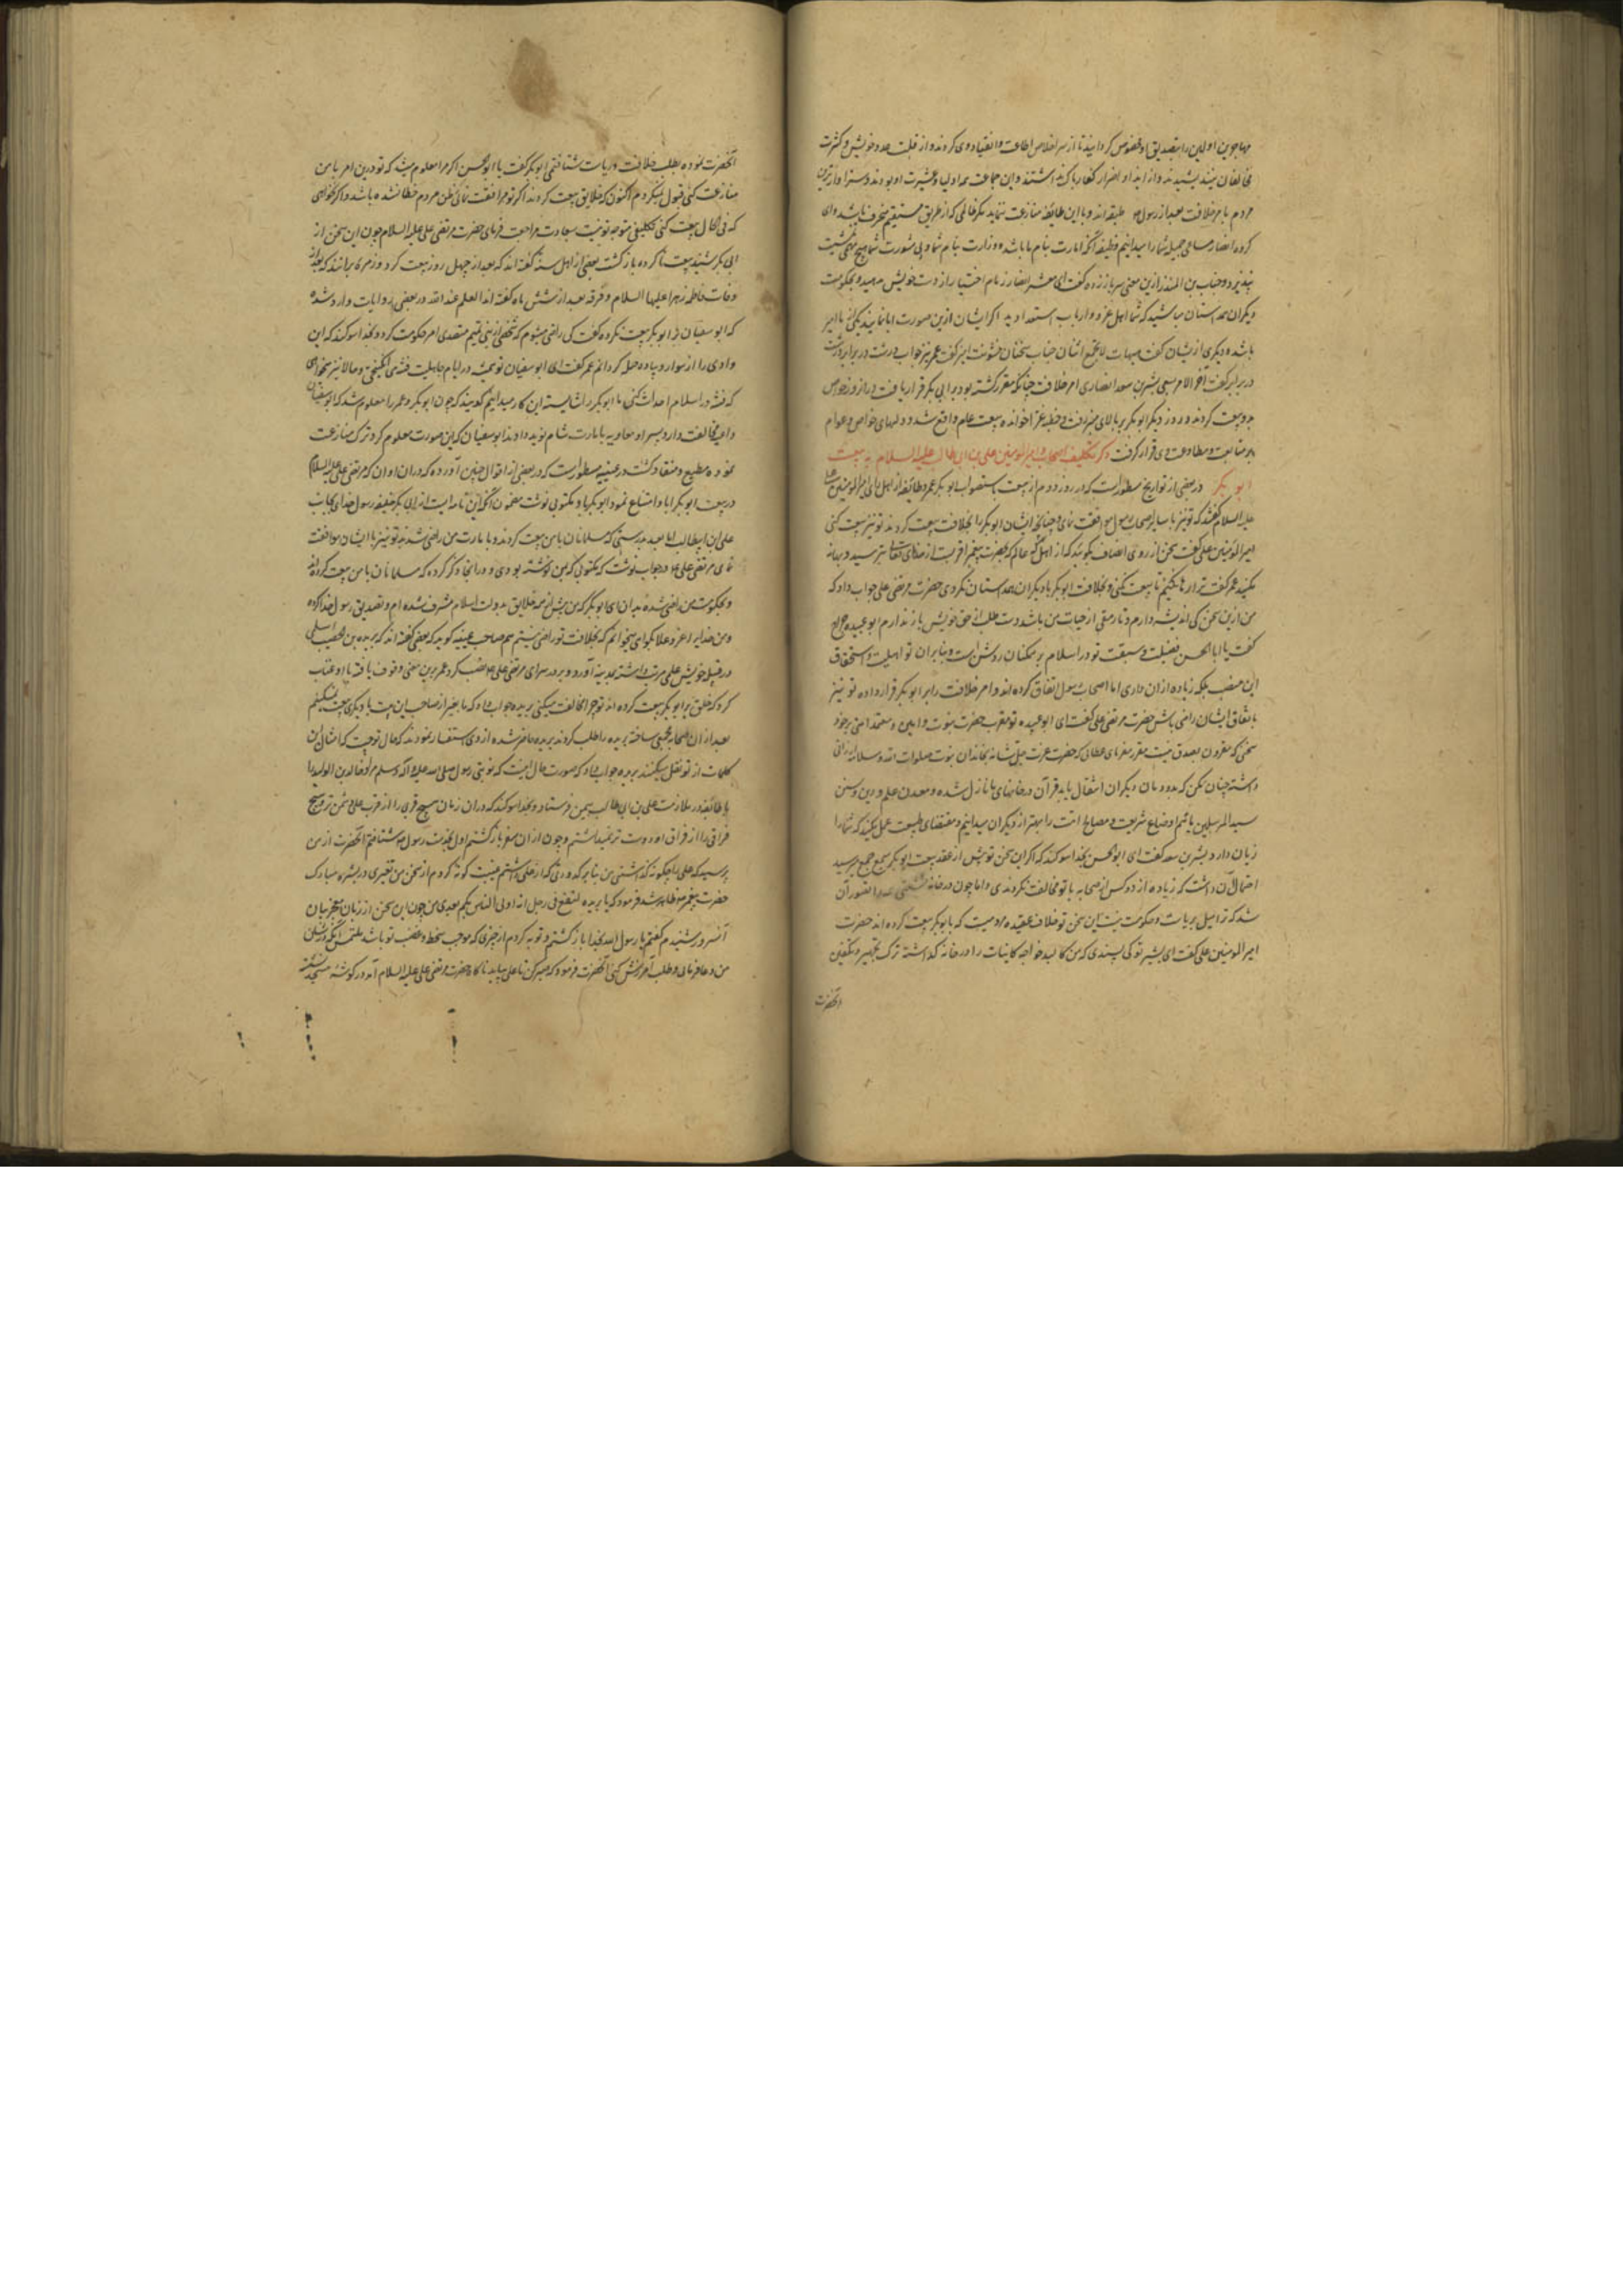 مهاجرین اولین را بتصدیق او مخصوص کردانید تا از سر اخلاص اطاعت و انقیاد وی کردند و از قلت عدد خویش و کثرت
مخالفان نیندیشیدند و از ایذا و اضرار کفار باک نداشتند و این جماعت همه اولیا و عشیرت او بودند و سزاوارترین
مردم بامر خلافت بعد از رسول طبقه اند و با این طائفه منازعت ننماید مکر ظالمی که از طریق مستقیم منحرف باشد و ای
کروه انصار مساعی جمیله شما را میدانیم وظیفه آنکه امارت بنام ما باشد و وزارت بنام شما و بی مشورت شما هیچ مهمی مشیت
نپذیرد و حباب بن المنذر ازین معنی سر باز زده گفت ای معشر انصار زمام اختیار از دست خویش مدهید و بحکومت
دیکران همداستان مباشید که شما اهل عز و ارباب استعدادید اکر ایشان ازین صورت ابا نمایند یکی از ما امیر
باشد و دیکری از یشان گفت هیهات لا یجتمع اثنان حباب سخنان خشونت امیز گفت عمر نیز جواب درشت در برابر
در برابر گفت آخر الامر بسعی بشیر بن سعد انصاری امر خلافت چنانکه مقرر گشته بود بر ابی بکر قرار یافت و دران روز خواص
بدو بیعت کردند و روز دیگر ابوبکر بر بالای منبر رفت و خطبه غرا خوانده بیعت عام واقع شد و دلهای خواص و عوام
بر متابعت و مطاوعت وی قرار گرفت ذکر تکلیف اصحاب امیر المومنین علی بن ابی طالب علیه السلام به بیعت
ابو بکر در بعضی از تواریخ مسطور است که در روز دوم از بیعت باستصواب ابوبکر عمر و طائفه از اهل رای امیر المومنین علی
علیه السلام گفتند که تو نیز با سایر اصحاب رسول موافقت نمای و چنانکه ایشان ابوبکر را بخلافت بیعت کردند تو نیز بیعت کنی
امیر المومنین علی گفت سخن از روی انصاف بگوئید که از اهل عالم که بحضرت پیغمبر اقربست از خدای تعالی بترسید و بهانه
مکنید عمر گفت ترا رها نکنیم تا بیعت نکنی و بخلافت ابوبکر با دیکران همداستان نکردی حضرت مرتضی علی جواب داد که
من ازین سخن کی اندیشه دارم و تا رمقی از حیات من باشد دست طلب از حق خویش باز ندارم ابو عبیده جراح
گفت یا ابا الحسن فضیلت و سبقت تو در اسلام بر همکنان روشن است و بنابران تو اهلیت و استحقاق
این منصب بلکه زیاده ازان داری اما اصحاب رسول اتفاق کرده اند و امر خلافت را بر ابوبکر قرار داده تو نیز
باتفاق ایشان راضی باش حضرت مرتضی علی گفت ای ابو عبیده تو مقرب حضرت نبوت و امین و معتمد امتی
سخنی که مقرون بصدق نیست مقرر مفرمای عطائی که حضرت عزت جل شانه بخاندان نبوت صلوات الله و سلامه ارزانی
داشته چنان مکن که بدودمان دیکران انتقال یابد قرآن در خانهای ما نازل شده و معدن علم و دین و سنن
سید المرسلین مائیم اوضاع شریعت و مصالح امت را بهتر از دیکران میدانیم و بمقتضای طبیعت عمل مکنید که شما را
زیان دارد بشیر بن سعد گفت ای ابو الحسن بخدا سوکند که اکر این سخن تو پیش از عقد بیعت ابوبکر بسمع جمع میرسید
احتمال آن داشت که زیاده از دو کس از صحابه با تو مخالفت نکردندی و اما چون در خانه نشستی تصور آن
شد که ترا میل بریاست و حکومت نیست این سخن تو خلاف عقیده مردمیست که با ابوبکر بیعت کرده اند حضرت
امیر المومنین علی گفت ای بشیر تو کی پسندی که من کالبد خواجه کاینات را در خانه کداشته ترک تجهیز و تکفین
آنحضرت
آنحضرت نموده بطلب خلافت و ریاست شتافتمی ابوبکر گفت یا ابو الحسن اکر مرا معلوم میشد که تو درین امر با من
منازعت کنی قبول نمیکردم اکنون که خلایق بیعت کردند اکر تو مرافقت نمائی ظن مردم خطا نشده باشد و اکر نخواهی
که فی الحال بیعت کنی تکلیفی متوجه تو نیست بسعادت مراجعت فرمای حضرت مرتضی علی علیه السلام چون این سخن از
ابی بکر شنید بیعت ناکرده بازگشت بعضی از اهل سنه گفته اند که بعد از چهل روز بیعت کرد و زمره برانند که بعد از
وفات فاطمه زهرا علیها السلام و فرقه بعد از شش ماه گفته اند العلم عند الله در بعضی روایات وارد شده
که ابو سفیان نیز با ابوبکر بیعت نکرده گفت کی راضی میشوم که شخصی از بنی تیم متصدی امر حکومت کردد بخدا سوکند که این
وادی را از سوار و پیاده مملو کردانم عمر گفت ای ابو سفیان تو همیشه در ایام جاهلیت فتنه می انکیختی و حالا نیز میخواهی
که فتنه در اسلام احداث کنی ما ابوبکر را شایسته این کار میدانیم گویند که چون ابوبکر و عمر را معلوم شد که ابو سفیان
داعیه مخالفت دارد پسر او معاویه را بامارت شام نوید دادند ابو سفیان که این صورت معلوم کرد ترک منازعت
نموده مطیع و منقاد گشت در غنیه مسطور است که در بعضی از اقوال چنین آورده که دران اوان که مرتضی علی علیه السلام
در بیعت ابوبکر ابا و امتناع نمود ابوبکر باو مکتوبی نوشت مضمون آنکه این نامه ایست از ابی بکر خلیفه رسول خدای بجانب
علی ابن ابیطالب اما بعد بدرستی که مسلمانان با من بیعت کردند و بامارت من راضی شدند تو نیز با ایشان موافقت
نمای مرتضی علی در جواب نوشت که مکتوبی که بمن نوشته بودی و درانجا ذکر کرده که مسلمانان با من بیعت کرده اند
و بحکومت من راضی شده بدان ای ابوبکر که من پیش از همه خلایق بدولت اسلام مشرف شده ام و تصدیق رسول خدا کرده
و من خدایرا عز و علا بگواهی میخوانم که بخلافت تو راضی نیستم هم صاحب غنیه گوید که بعضی گفته اند که بریده بن الحصیب اسلمی
در قبیله خویش علمی مرتب داشته بمدینه آورد و بر در سرای مرتضی علی نصب کرد عمر برین معنی وقوف یافته با او عتاب
کرد که خلق بر ابوبکر بیعت کرده اند تو چرا مخالفت میکنی بریده جواب داد که ما بغیر از صاحب این بیت با دیکری بیعت نمیکنیم
بعد ازان صحابه مجمعی ساخته بریده را طلب کردند بریده حاضر شده از وی استفسار نمودند که حال تو چیست که امثال این
کلمات از تو نقل میکنند بریده جواب داد که صورت حال اینست که نوبتی رسول صلی الله علیه و آله و سلم مرا و خالد بن الولید را
با طائفه در ملازمت علی بن ابی طالب بیمن فرستاد و بخدا سوکند که دران زمان هیچ قربی را از قرب علی دشمن تر و هیچ
فراقی را از فراق او دوست تر نمیداشتم و چون ازان سفر بازگشتم اول بخدمت رسول شتافتم آنحضرت از من
پرسید که علی را چکونه گذاشتی من بنا بر کدورتی که از علی داشتم غیبت گونه کردم از سخن من تغییری در بشره مبارک
حضرت پیغمبر ظاهر شد فرمود که یا بریده لتقع فی رجل انه اولی الناس بکم بعدی من چون این سخن از زبان معجز بیان
آنسرور شنیدم گفتم یا رسول الله بخدا بازگشتم و توبه کردم از چیزی که موجب سخط و غضب تو باشد ملتمس آنکه در شان
من دعا فرمائی و طلب آمرزش کنی آنحضرت فرمود که صبر کن تا علی بیاید ناگاه حضرت مرتضی علی علیه السلام آمد در گوشه مسجد نشست